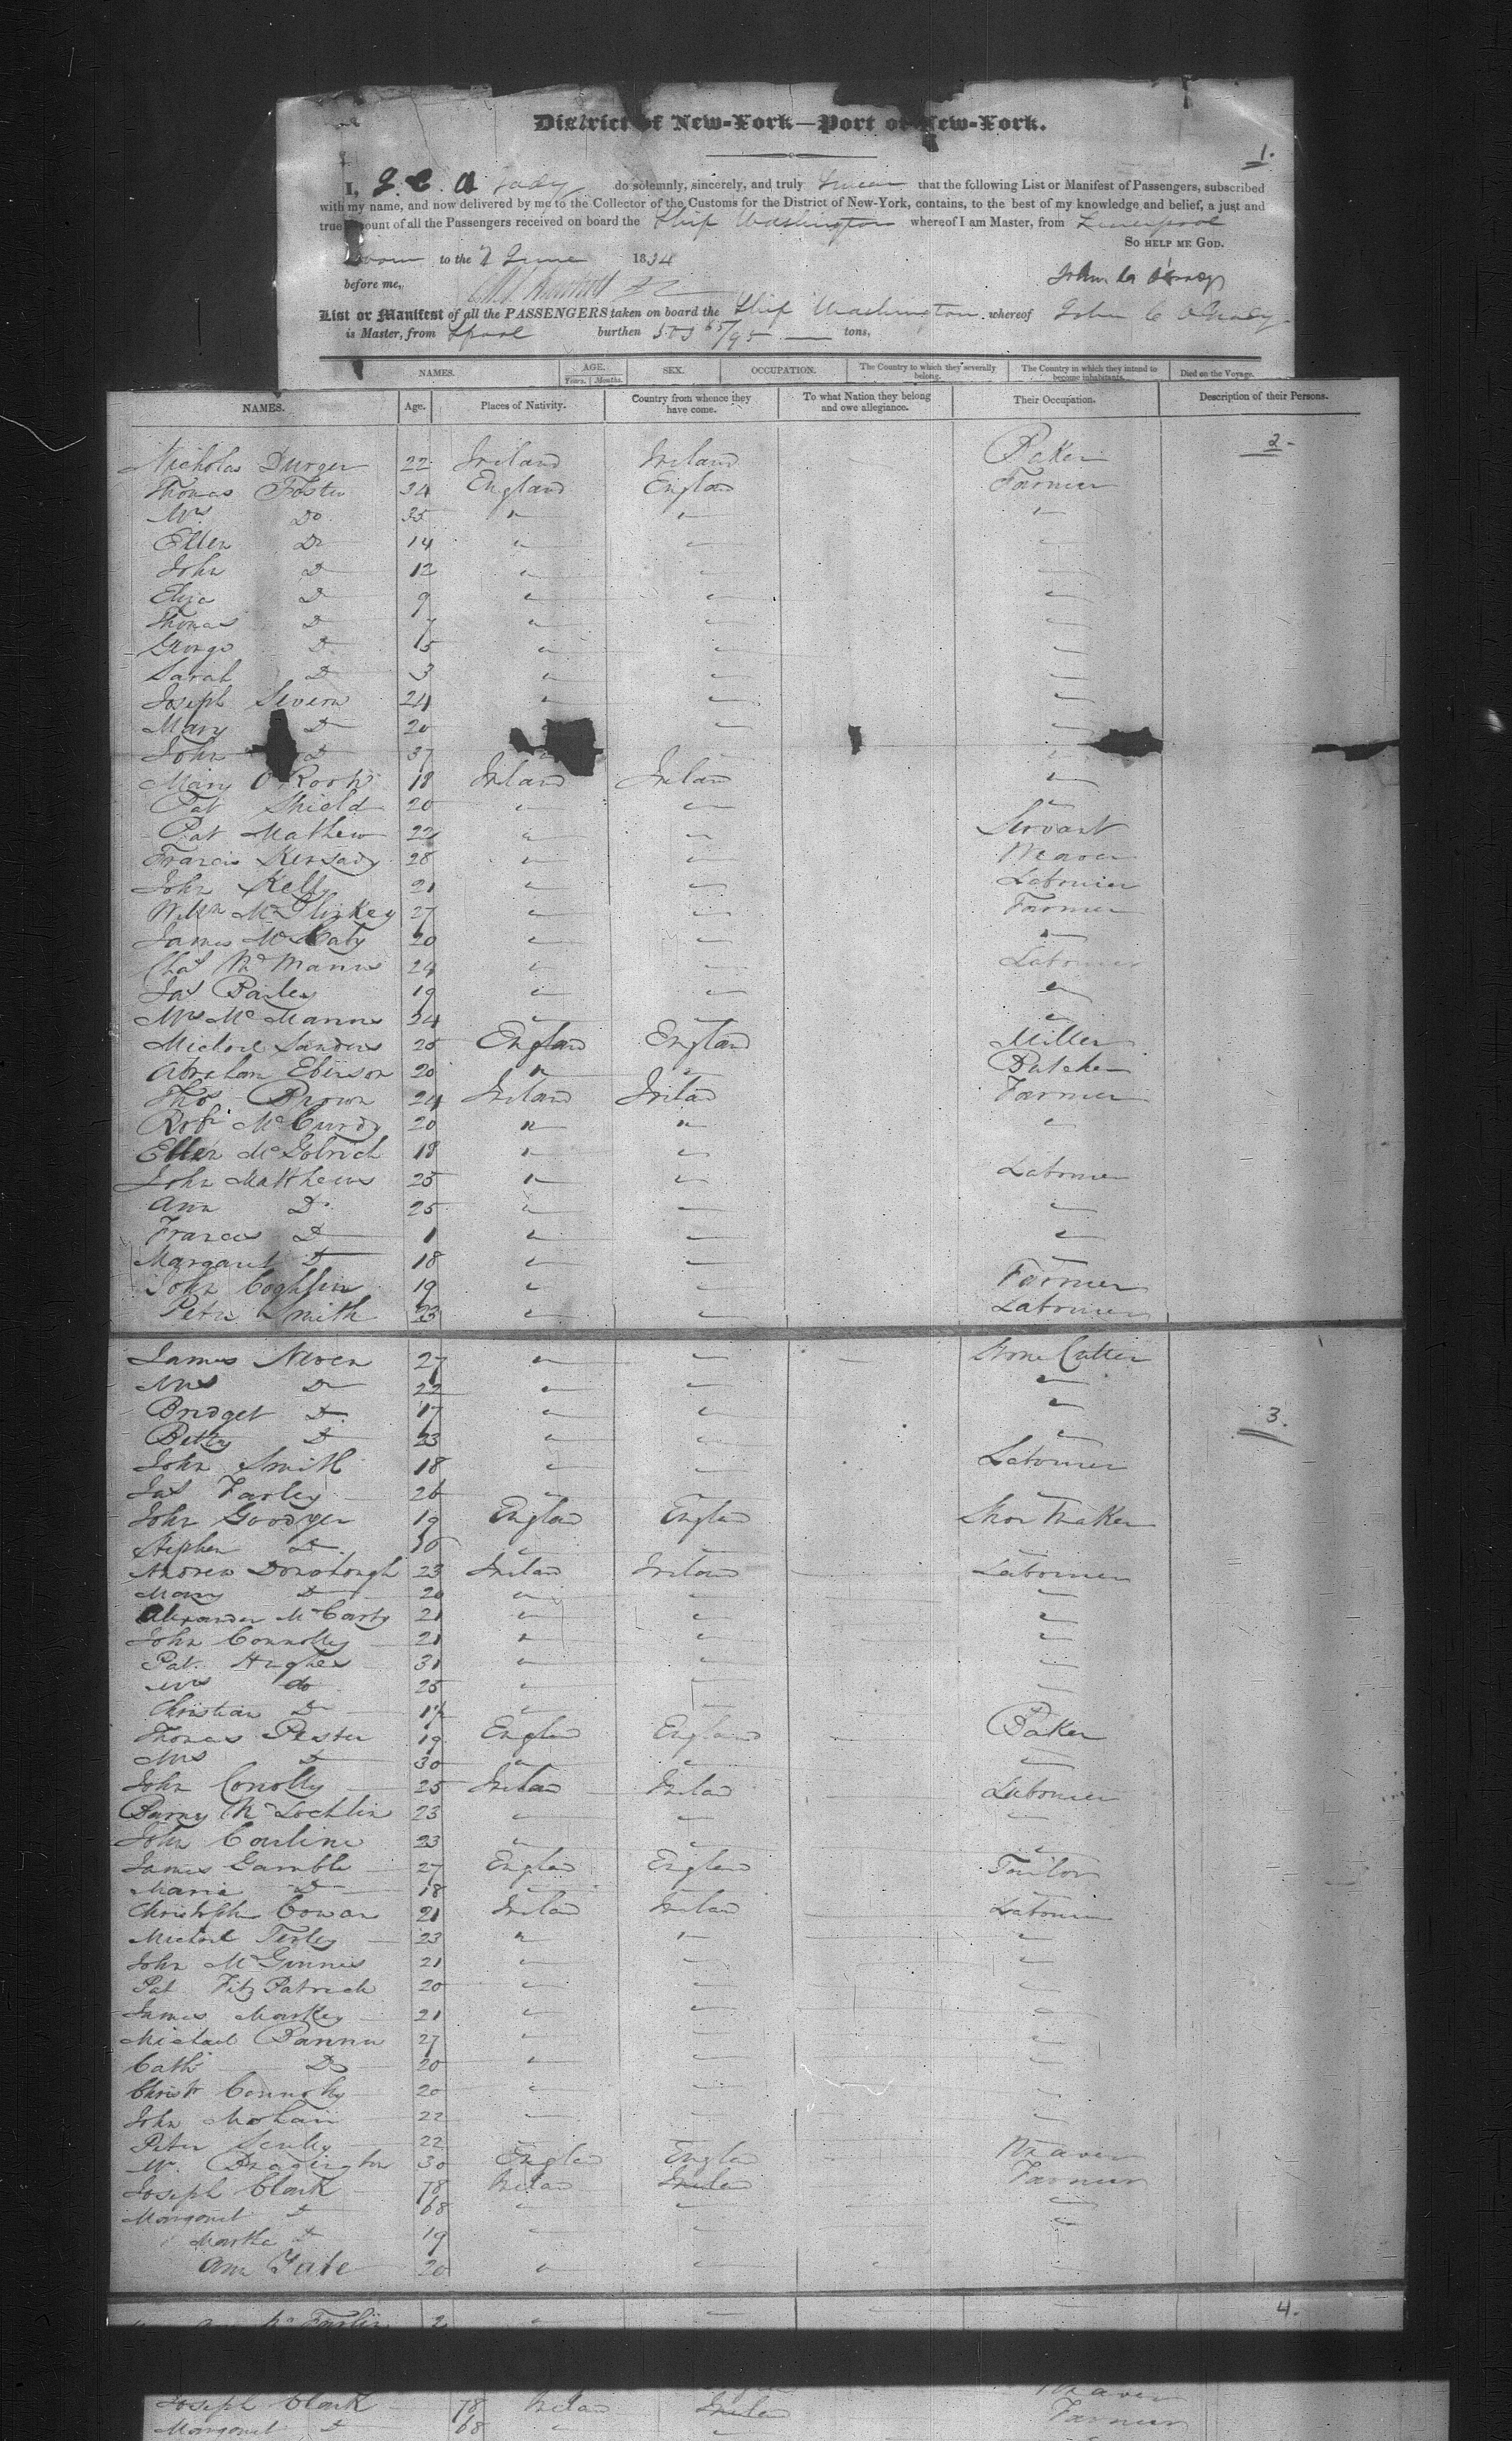 District of New-York—Port of New-York.
1.
I, J. C. O Grady do solemnly, sincerely, and truly Swear that the following List or Manifest of Passengers, subscribed
with my name, and now delivered by me to the Collector of the Customs for the District of New-York, contains, to the best of my knowledge and belief, a just and
true account of all the Passengers received on board the Ship Washington whereof I am Master, from Liverpool
So HELP ME GOD.
Sworn to the 7 June 1834
before me,
List or Manifest of all the PASSENGERS taken on board the Ship Washington whereof John C OGrady
is Master, from Lpool burthen tons,
NAMES. AGE. SEX. OCCUPATION. The Country to which they severally belong. The Country in which they intend to become inhabitants. Died on the Voyage.
Years. Months.
NAMES. Age. Places of Nativity. Country from whence they have come. To what Nation they belong and owe allegiance. Their Occupation. Description of their Persons.
2-
Nicholas Durger 22 Ireland Ireland Baker
Thomas Foster 34 England England Farmer
Mrs Do 35 " " "
Ellen Do 14 " " "
John D 12 " " "
Eliza D 9 " " "
Thomas D 7 " " "
George D 5 " " "
Sarah D 3 " " "
Joseph Severn 24 " " "
Mary D 20 " "
John D 37 " "
Mary O Rork 18 Ireland Ireland "
Pat Shield 20 " " "
Pat Mathew 22 " " Servant
Francis 28 " " Weaver
John Kelly 21 " " Labourer
Wm 27 " " Farmer
James 20 " " "
Chas McManus 24 " " Labourer
Jas Bailey 19 " " "
Mrs McManus 24 " " "
Michael Sanders 25 England England Miller
Abraham Ebinson 20 " " Butcher
Thos Brown 24 Ireland Ireland Farmer
Robt McCurdy 20 " " "
Ellen McGolrich 18 " "
John Matthews 25 " " Labourer
Ann D 25 " " "
Frances D 1 " " "
Margaret D 18 " "
John Coghlin 19 " " Farmer
Peter Smith 23 " " Labourer
James Neven 27 " " Stone Cutter
Mrs D 22 " " "
Bridget D 17 " " "
3.
Betty D 23 " " "
John Smith 18 " " Labourer
Jas Farley 26 " "
John Goodyer 19 England England Shoe Maker
Stephen D " "
Andrew Donohough 23 Ireland Ireland Labourer
Mary D 20 " " "
Alexander McCarty 21 " " "
John Connolly 21 " " "
Pat. Hughes 31 " " "
Mrs do 25 " " "
Christian D " "
Thomas Pester 19 England England Baker
Mrs D 30 " " "
John Conolly 25 Ireland Ireland Labourer
Barney McLochlin 23 " " "
John Carline 23 " " "
James Gamble 27 England England Tailor
Maria D 18
Christopher Cowan 21 Ireland Ireland Labourer
Michael 23 " " "
John McGinnes 21 " " "
Pat Fitz Patrick 20 " " "
James Markey 21 " " "
Michael Bannon 27 " " "
Cath Do 20 " " "
Christr Connolly 20 " " "
John Mohan 22 " " "
Peter Scully 22
W. 30 England England Weaver
Joseph Clark 78 Ireland Ireland Farmer
Margaret D 68 " " "
Martha D 19 " " "
Ann Tate 20 " "
4.
Joseph Clark 78 Ireland Ireland Farmer
Margaret D 68 "